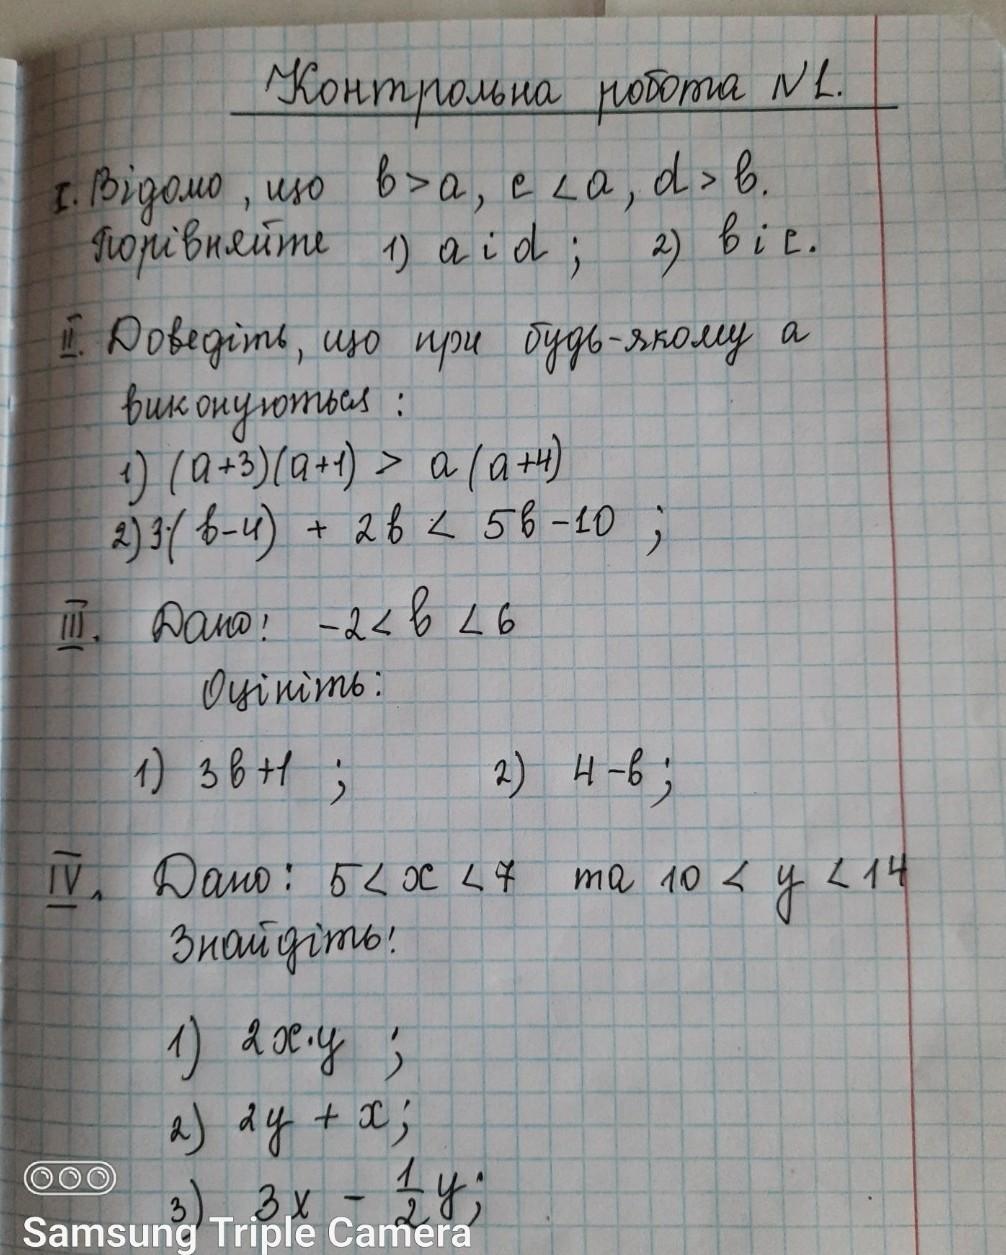 Контрольна робота N1.
I. Відомо, що b > a, c < a, d > b.
Порівняйте 1) a i d; 2) b i c.
II. Доведіть, що при будь-якому a
виконуються:
1) (a+3)(a+1) > a(a+4)
2) 3·(b-4) + 2b < 5b-10;
III. Дано: -2 < b < 6
Оцініть:
1) 3b+1; 2) 4-b;
IV. Дано: 5 < x < 7 та 10 < y < 14
Знайдіть:
1) 2x·y;
2) 2y + x;
3) 3x - 1/2 y;
Samsung Triple Camera